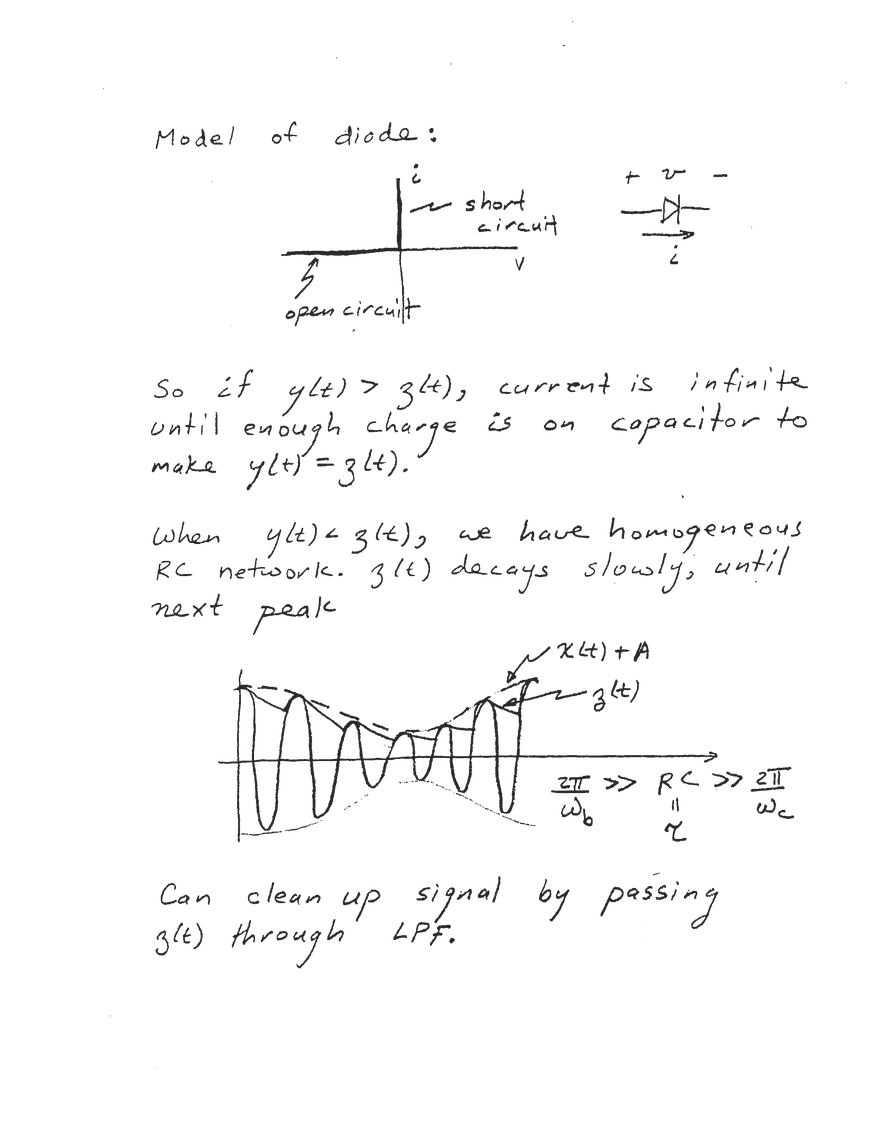 Model of diode:
i
+ v -
short
circuit
i
v
open circuit
So if y(t) > z(t), current is infinite
until enough charge is on capacitor to
make y(t) = z(t).
When y(t) < z(t), we have homogeneous
RC network. z(t) decays slowly, until
next peak
x(t) + A
z(t)
2π/ω_b >> RC >> 2π/ω_c
=
τ
Can clean up signal by passing
z(t) through LPF.